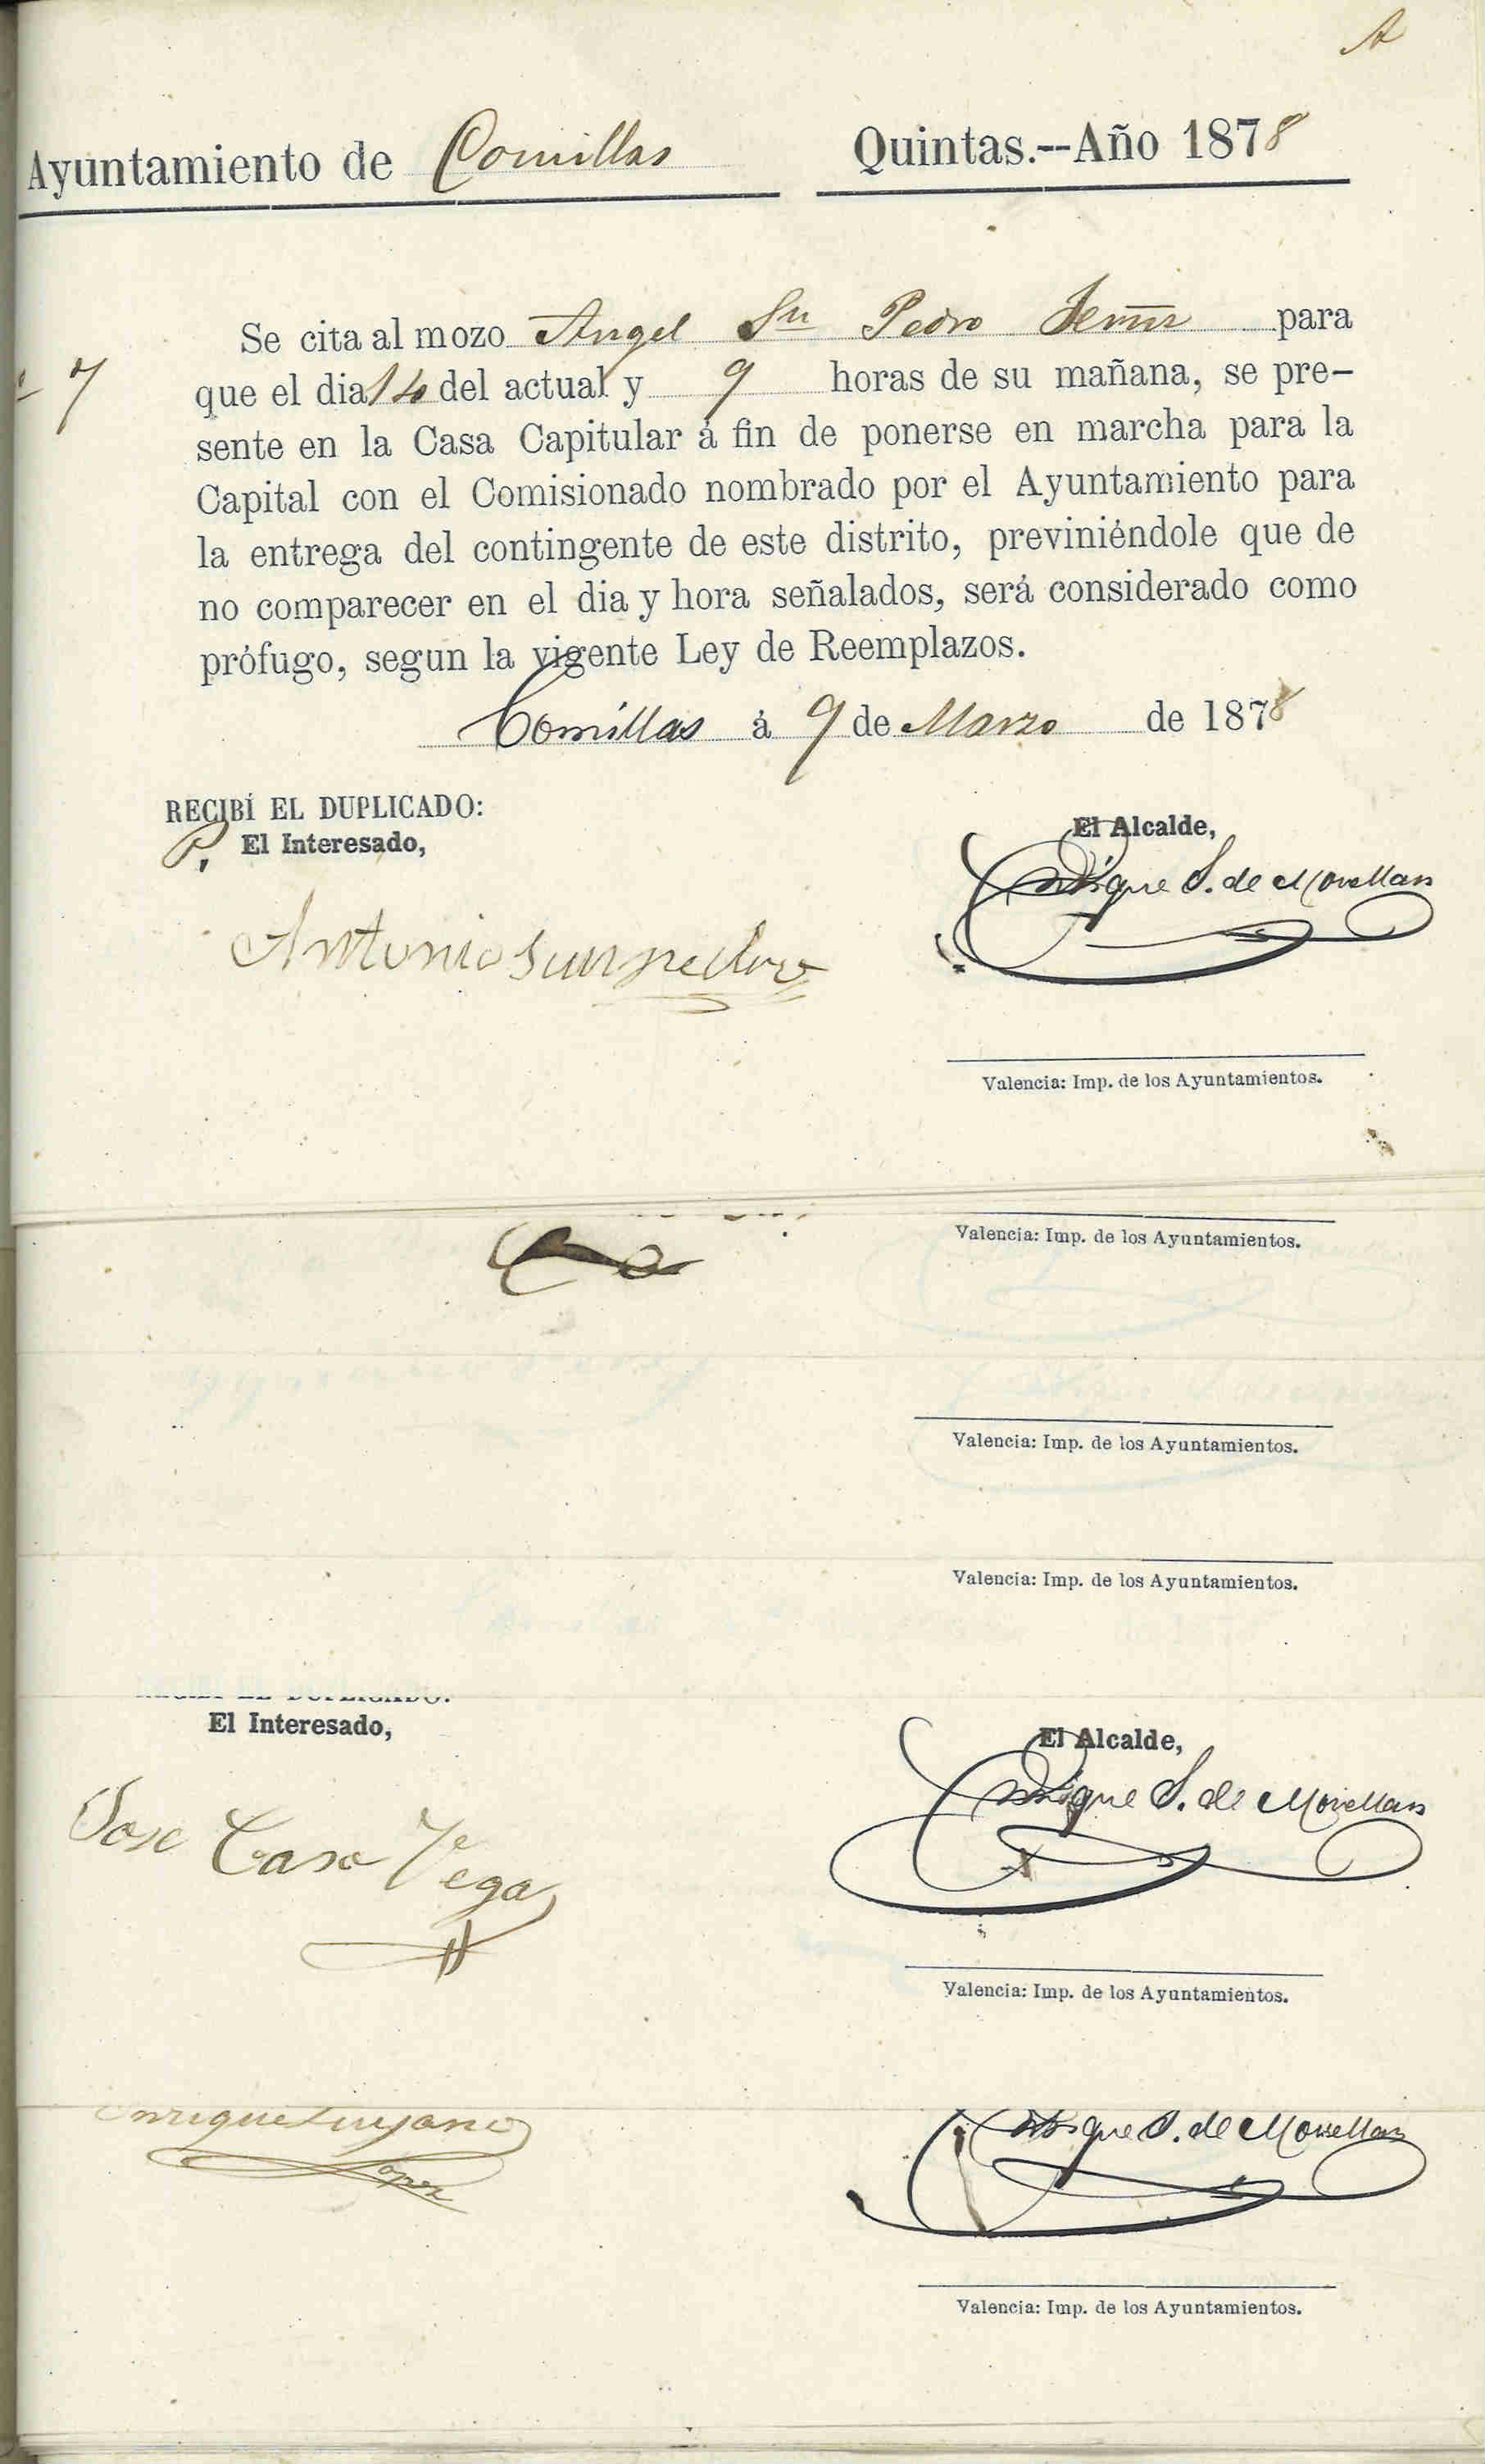 A
Ayuntamiento de Comillas Quintas.--Año 1878
Se cita al mozo Angel Sn Pedro para
7 que el dia 14 del actual y 9 horas de su mañana, se pre-
sente en la Casa Capitular á fin de ponerse en marcha para la
Capital con el Comisionado nombrado por el Ayuntamiento para
la entrega del contingente de este distrito, previniéndole que de
no comparecer en el dia y hora señalados, será considerado como
prófugo, segun la vigente Ley de Reemplazos.
Comillas á 9 de Marzo de 1878
RECIBÍ EL DUPLICADO:
P. El Interesado,
El Alcalde,
Enrique S. de Movellan
Antonio sanpedro
Valencia: Imp. de los Ayuntamientos.
Valencia: Imp. de los Ayuntamientos.
Valencia: Imp. de los Ayuntamientos.
Valencia: Imp. de los Ayuntamientos.
RECIBÍ EL DUPLICADO:
El Interesado,
El Alcalde,
Enrique S. de Movellan
Jose Caso Vega
Valencia: Imp. de los Ayuntamientos.
Enrique Luyano
Lopez
Enrique S. de Movellan
Valencia: Imp. de los Ayuntamientos.